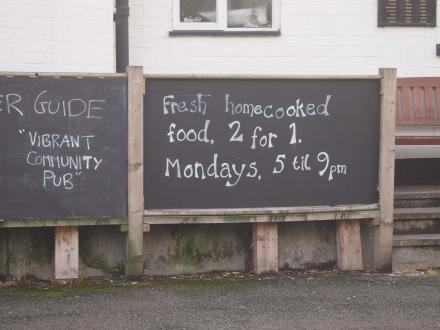 ER GUIDE
"VIBRANT
COMMUNITY
PUB"
Fresh homecooked
food, 2 for 1,
Mondays, 5 til 9pm